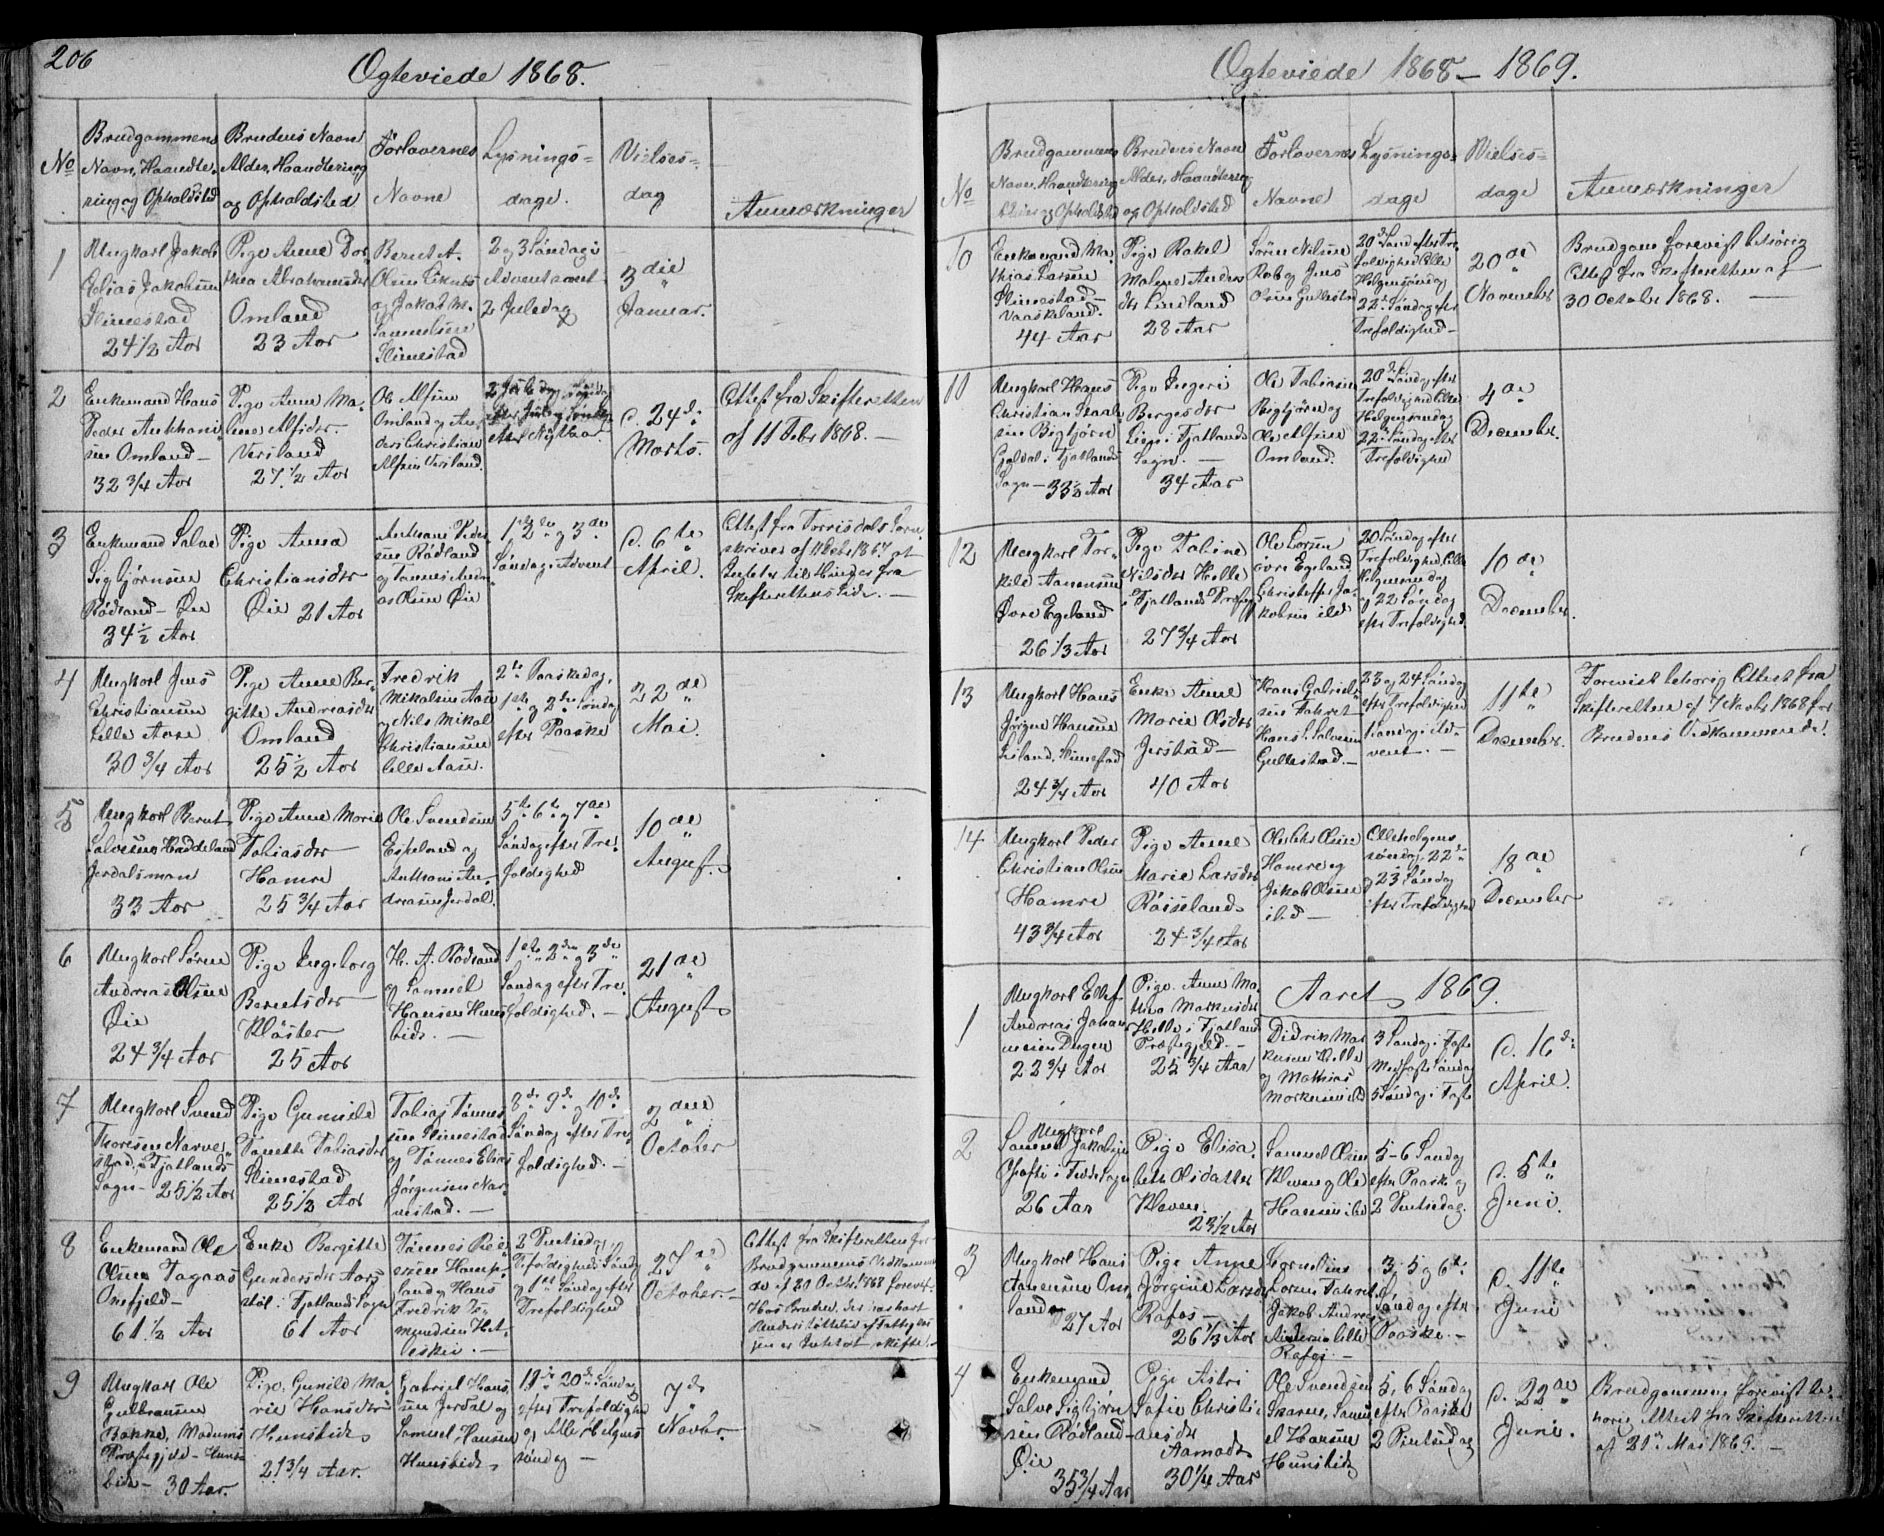 206
Ogteviede 1868.
No
Brudgommens
Navn, Haandte-
ring og Opholdsted
Brudens Navn
Alder, Haandtering
og Opholdsted
Forlovernes
Navne
Lysnings-
dage.
Vielses-
dag
Anmærkninger
1
Ungkarl Jakob
Elias Jakobsen
Stimestad
24 1/2 Aar
Pige Anne Dor-
thea Abrahamsdtr
Omland
23 Aar
Berent A.
Olsen
og Jakob M.
Samuelsen
Stimestad
2 og 3 Søndag i
Advent samt
2 Juledag
3die
Januar.
2
Enkemand Hans
Peder Anthoni-
sen Omland
32 3/4 Aar
Pige Anne Ma-
lene Alfsdtr.
Versland
27 1/2 Aar
Ole Alfsen
Omland og An-
ders Christian
Alfsen Versland.
2 Juledag, Søndag
efter Jul og Søndag
efter Nytaar.
d. 24de
Marts.
Attest fra Skifteretten
af 11 Febr 1868. —
3
Enkemand Salve
Sigbjørnsen
Rødland — Øie
34 1/2 Aar
Pige Anna
Christiansdtr
Øie 21 Aar
Anthoni Peder-
sen Rødland
og Tønnes Andre-
as Olsen Øie
1ste 2den og 3die
Søndag i Advent
d. 6te
April.
Attest fra Torrisdals Soren-
skriver af 11 Febr 1867 at
Intet er til Hinder fra
Skifterettens Side. —
4
Ungkarl Jens
Christiansen
Lille Aase
30 3/4 Aar
Pige Anne Ber-
gitte Andreasdtr
Omland
25 1/2 Aar
Fredrik
Mikalsen Aase
og Nils Mikal
Christiansen
lille Aase.
2den Paaskedag,
1ste og 2den Søndag
efter Paaske
22de
Mai.
5
Ungkarl Bernt
Salvesen Haddeland
Jerdalsmoen
33 Aar
Pige Anne Marie
Tobiasdtr
Hamre
25 3/4 Aar
Ole Svendsen
Eskeland og
Anthoni An-
dreasen Jerdal.
5te 6te og 7de
Søndag efter Tre-
foldighed
10de
August.
6
Ungkarl Søren
Andreas Olsen
Øie
24 3/4 Aar
Pige Ingeborg
Berentsdtr
Kløster
25 Aar
H. A. Rødland
og Samuel
Hansen Huns-
bids. —
1ste 2den og 3die
Søndag efter Tre-
foldighed. —
21de
August
7
Ungkarl Svend
Thoresen Narve-
stad, i Fjotlands
Sogn — 25 1/2 Aar
Pige Gunnild
Tonette Tobiasdtr
Stimestad
25 1/2 Aar
Tobias Tønnes-
sen Stimestad
og Tønnes Elias
Jørgensen Nar-
vestad. —
8de 9de og 10de
Søndag efter Tre-
foldighed. —
2den
October
8
Enkemand Ole
Olsen Tagaas
Onefjeld —
61 1/2 Aar
Enke Bergitte
Gundersdtr Aars-
støl i Fjotlands Sogn
61 Aar
Tønnes
Homp-
land og Hans
Fredrik
2 Pintsedag,
Trefoldigheds Søndag
og 1ste Søndag efter
Trefoldighed
27de
October
Attest fra Skifteretten for
Brudgommens Vedkommen-
de af 20 Octbr. 1868 forevist.
9
Ungkarl Ole
Gulbransen
Bakke, Modums
Præstegjeld — Huns-
bids — 30 Aar.
Pige Gunild Ma-
rie Hansdtr
Hunsbids
21 3/4 Aar.
Gabriel Hans-
sen Jerdal og
Samuel Hansen
Hunsbids
19de 20de Søndag
efter Trefoldighed
og Alle Helgens
søndag —
7de
Novbr.
Ogteviede 1868 — 1869.
No
Brudgommens
Navn, Haandtering
Alder og Opholdsted
Brudens Navn
Alder, Haandtering
og Opholdsted
Forlovernes
Navne
Lysnings-
dage
Vielses-
dage
Anmærkninger
10
Enkemand Ma-
thias Larsen
Stimestad —
Vaaskeland.
44 Aar
Pige Rakel
Malene Anders-
dtr Lindland
28 Aar
Søren Nilsen
Rob og Jens
Olsen Gullestad
20de Sønd efter Tre-
foldighed Alle
Helgensøndag
22de Søndag efter
Trefoldighed —
20de
November
Brudgom forevist behørig
Attest fra Skifteretten af
30 October 1868. —
11
Ungkarl Hans
Christian
sen Bigbjørn
i Fjotlands
Sogn — 33 1/2 Aar
Pige Ingeri
Borgesdtr
Liene i Fjotlands
Sogn. —
34 Aar
Ole Tobiasen
Bigbjørn og
Ole Alfsen
Omland.
20de Søndag efter
Trefoldighed Alle
Helgensøndag
22de Søndag efter
Trefoldighed
4de
December.
12
Ungkarl Tor-
kild Aanensen
Øvre Egeland
26 1/3 Aar
Pige Tobine
Nilsdtr Helle
i Fjotlands Præstegj
27 3/4 Aar
Ole Larsen
øvre Egeland
Christoffer Ja-
kobsen ibd
20 Søndag efter
Trefoldighed, Alle
Helgensøndag
og 22 Søndag
efter Trefoldighed.
10de
December.
13
Ungkarl Hans
Jørgen Hansen
Eiland, Stimestad
24 3/4 Aar
Enke Anne
Marie Olsdtr
Jerstad —
40 Aar
Hans Gabriel-
sen Faaret
Hans Salvesen
Gullestad. —
23 og 24 Søndag
efter Trefoldighed
Søndag i Ad-
vent. —
11te
December.
Forevist behørig Attest fra
Skifteretten af 7 Novbr 1868 for
Brudens Vedkommende.
14
Ungkarl Peder
Christian Olsen
Hamre
43 3/4 Aar
Pige Anne
Marie Larsdtr
Røiseland
24 3/4 Aar
Ole Chr. Olsen
Hamre og
Jakob Olsen
ibd —
Allehelgens
søndag, 22de
og 23 Søndag
efter Trefoldighed
18de
December
Aaret 1869.
1
Ungkarl Ellef
Andreas Johan-
nesen Dugen
22 3/4 Aar
Pige Anne Ma-
thea Markusdtr
Helle i Fjotland
Præstegjeld. —
25 3/4 Aar
Didrik Mar-
kusen Helle
og Mathias
Markusen ibd
3 Søndag i Faste
Midfaste Søndag
5 Søndag i Faste
d. 16de
April.
2
Ungkarl
Samuel Jakobsen
i Fede Sogn
26 Aar
Pige Elisa-
beth Olsdatter
Kleven.
23 1/2 Aar
Samuel Olsen
Kleven og Ole
Hansen ibd
5 — 6 Søndag
efter Paaske og
2 Pintsedag.
d. 5te
Juni.
3
Ungkarl Hans
Aanensen Om-
land
27 Aar
Pige Anne
Jørgine Larsdtr
Rafos —
26 1/3 Aar
Cornelius
Larsen Faaret
Jakob Andreas
Andersen Lille
Rafos. —
3, 5 og 6te
Søndag efter
Paaske. —
d. 11te
Juni
4
Enkemand
Salve Sigbjørn-
sen Rødland —
Øie
35 3/4 Aar
Pige Astri
Sofie Christi-
ansdtr
Aamodt
30 1/4 Aar
Ole Svendsen
Skaren, Samu-
el Hansen
Hunsbids
5, 6 Søndag
efter Paaske
2 Pintsedag
d. 22de
Juni.
Brudgommen forevist be-
hørig Attest fra Skifteretten
af 21de Mai 1869. —